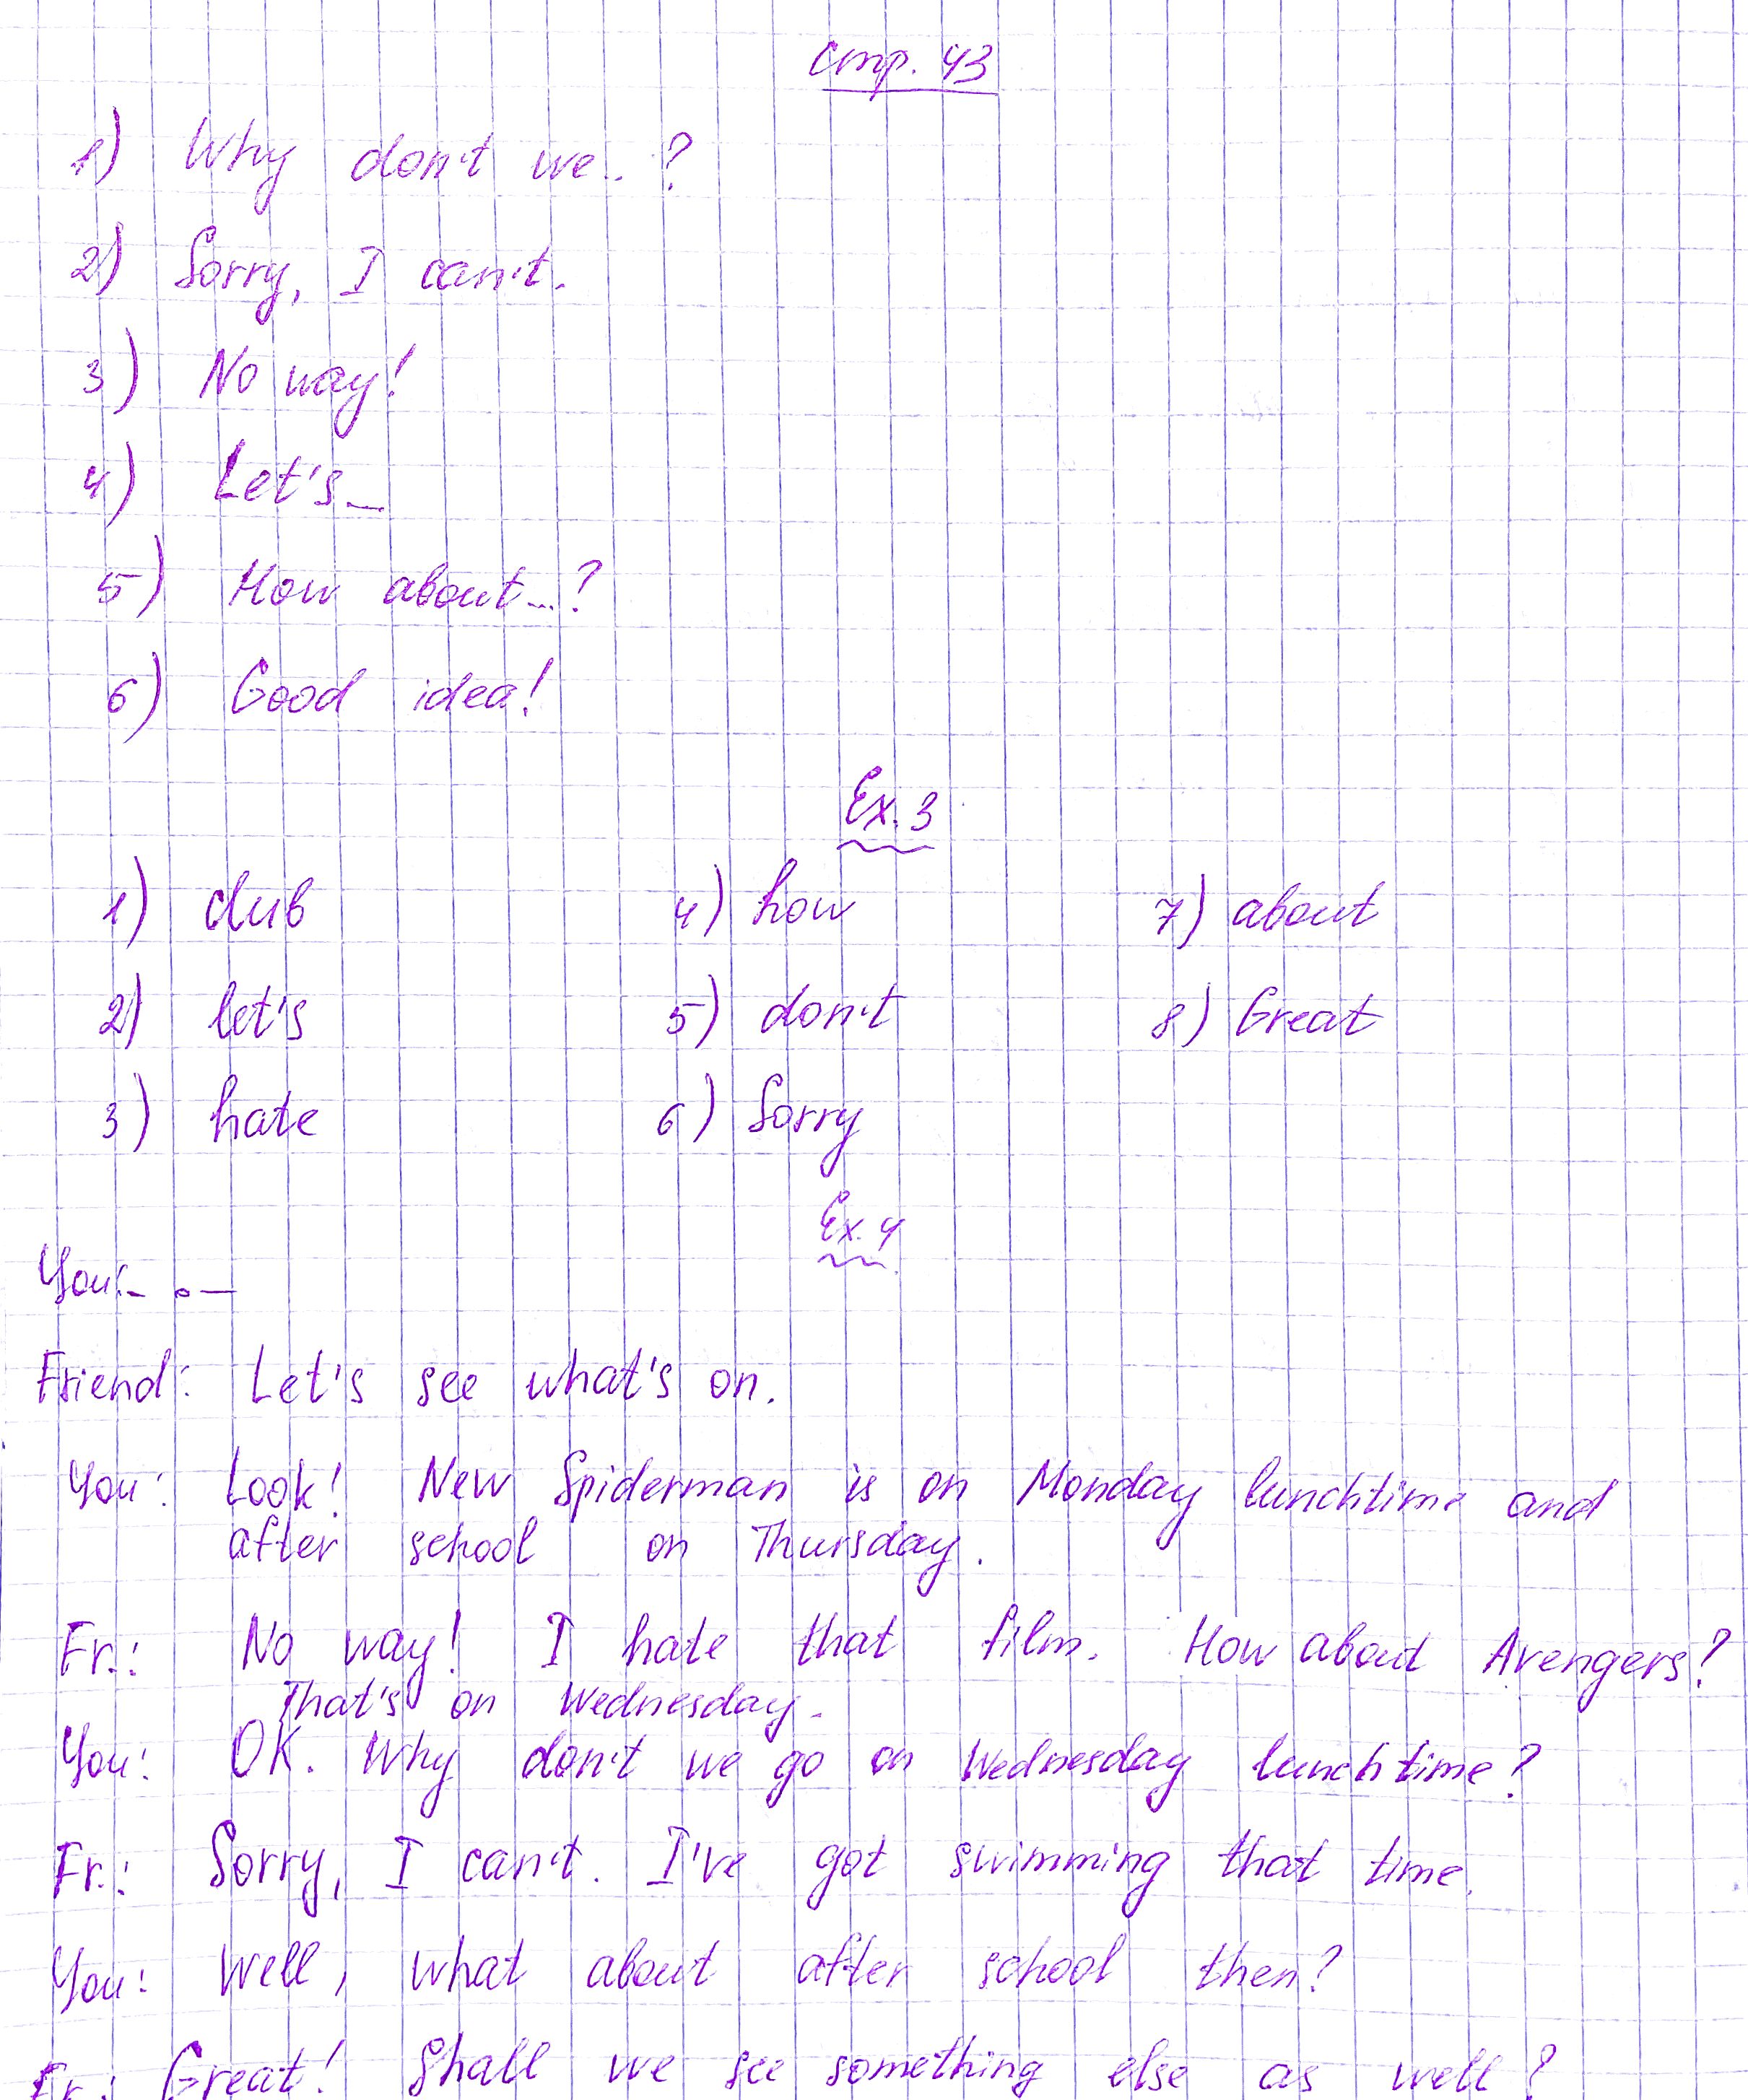 Стр. 43
1) Why don't we... ?
2) Sorry, I can't.
3) No way!
4) Let's...
5) How about...?
6) Good idea!
Ex. 3
1) club 4) how 7) about
2) let's 5) don't 8) Great
3) hate 6) Sorry
Ex. 4
You: - " -
Friend: Let's see what's on.
You: Look! New Spiderman is on Monday lunchtime and
after school on Thursday.
Fr.: No way! I hate that film. How about Avengers?
That's on Wednesday.
You: OK. Why don't we go on Wednesday lunchtime?
Fr.: Sorry, I can't. I've got swimming that time.
You: Well, what about after school then?
Fr.: Great! Shall we see something else as well?